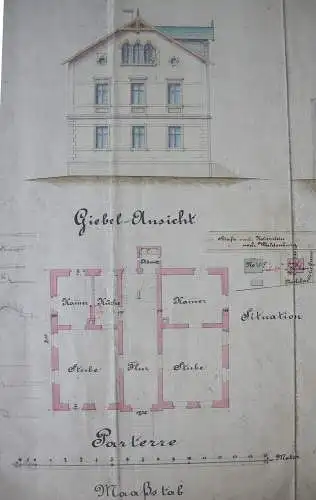 Giebel-Ansicht
Abort
Straße nach
nach Waldenburg
Kamer
Küche
Kamer
Situation
Stube
Flur
Stube
Parterre
Meter
Maaßstab